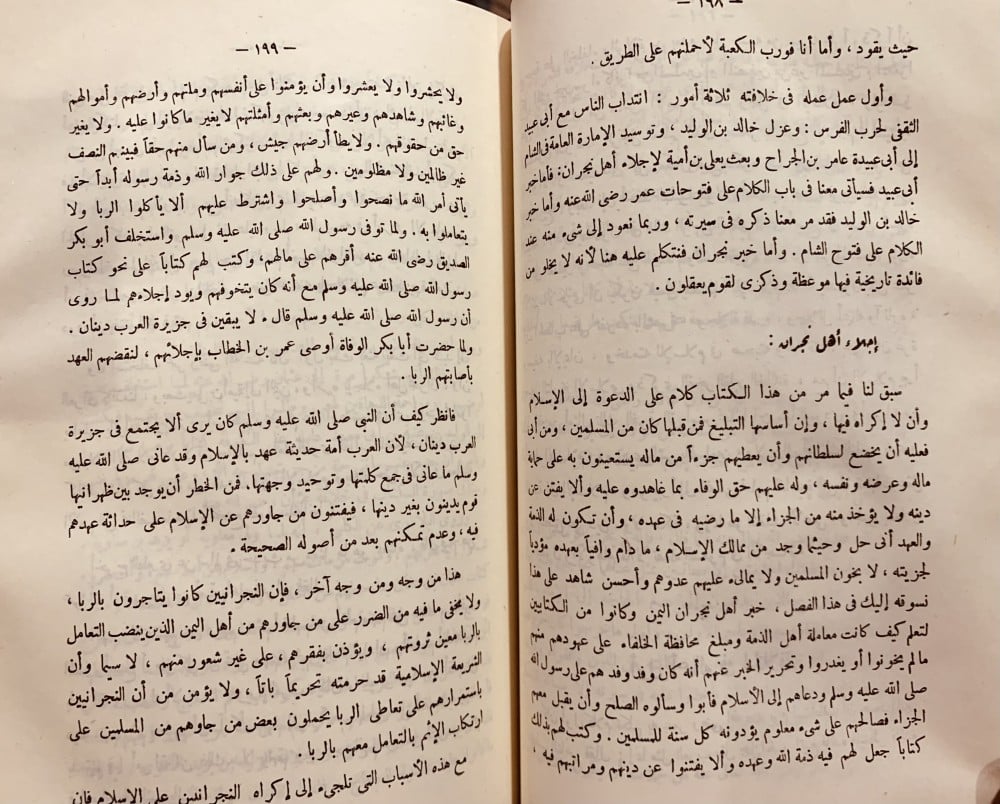 — ١٩٨ —
حيث يقود ، وأما أنا فورب الكعبة لأحملنهم على الطريق .
وأول عمل عمله فى خلافته ثلاثة أمور : انتداب الناس مع أبى عبيد
الثقفى لحرب الفرس : وعزل خالد بن الوليد ، وتوسيد الإمارة العامة فى الشام
إلى أبى عبيدة عامر بن الجراح وبعث يعلى بن أمية لإجلاء أهل نجران : فأما خبر
أبى عبيد فسيأتى معنا فى باب الكلام على فتوحات عمر رضى الله عنه وأما خبر
خالد بن الوليد فقد مر معنا ذكره فى سيرته ، وربما نعود إلى شىء منه عند
الكلام على فتوح الشام . وأما خبر نجران فنتكلم عليه هنا لأنه لا يخلو من
فائدة تاريخية فيها موعظة وذكرى لقوم يعقلون .
إجلاء أهل نجران :
سبق لنا فيما مر من هذا الكتاب كلام على الدعوة إلى الإسلام
وأن لا إكراه فيها ، وإن أساسها التبليغ فمن قبلها كان من المسلمين ، ومن أبى
فعليه أن يخضع لسلطانهم وأن يعطيهم جزءاً من ماله يستعينون به على حماية
ماله وعرضه ونفسه ، وله عليهم حق الوفاء بما عاهدوه عليه وألا يفتن عن
دينه ولا يؤخذ منه من الجزاء إلا ما رضيه فى عهده ، وأن تكون له الذمة
والعهد أنى حل وحيثما وجد من ممالك الإسلام ، ما دام وافياً بعهده مؤدياً
لجزيته ، لا يخون المسلمين ولا يمالىء عليهم عدوهم وأحسن شاهد على هذا
نسوقه إليك فى هذا الفصل ، خبر أهل نجران اليمن وكانوا من الكتابيين
لتعلم كيف كانت معاملة أهل الذمة ومبلغ محافظة الخلفاء على عهودهم منهم
ما لم يخونوا أو يغدروا وتحرير الخبر عنهم أنه كان وفد وفدهم على رسول الله
صلى الله عليه وسلم ودعاهم إلى الأسلام فأبوا وسألوه الصلح وأن يقبل معهم
الجزاء فصالحهم على شىء معلوم يؤدونه كل سنة للمسلمين . وكتب لهم بذلك
كتاباً جعل لهم فيه ذمة الله وعهده وألا يفتنوا عن دينهم ومراتبهم فيه ،
— ١٩٩ —
ولا يحشروا ولا يعشروا وأن يؤمنوا على أنفسهم وملتهم وأرضهم وأموالهم
وغائبهم وشاهدهم وعيرهم وبعثهم وأمثلتهم لا يغير ما كانوا عليه . ولا يغير
حق من حقوقهم . ولا يطأ أرضهم جيش ، ومن سأل منهم حقاً فبينهم النصف
غير ظالمين ولا مظلومين . ولهم على ذلك جوار الله وذمة رسوله أبداً حتى
يأتى أمر الله ما نصحوا وأصلحوا واشترط عليهم ألا يأكلوا الربا ولا
يتعاملوا به . ولما توفى رسول الله صلى الله عليه وسلم واستخلف أبو بكر
الصديق رضى الله عنه أقرهم على مالهم، وكتب لهم كتاباً على نحو كتاب
رسول الله صلى الله عليه وسلم مع أنه كان يتخوفهم ويود إجلاءهم لما روى
أن رسول الله صلى الله عليه وسلم قال « لا يبقين فى جزيرة العرب دينان .
ولما حضرت أبا بكر الوفاة أوصى عمر بن الخطاب بإجلائهم ، لنقضهم العهد
بأصابتهم الربا .
فانظر كيف أن النبى صلى الله عليه وسلم كان يرى ألا يجتمع فى جزيرة
العرب دينان، لأن العرب أمة حديثة عهد بالإسلام وقد عانى صلى الله عليه
وسلم ما عانى فى جمع كلمتها وتوحيد وجهتها، فمن الخطر أن يوجد بين ظهرانيها
قوم يدينون بغير دينها ، فيفتنون من جاورهم عن الإسلام على حداثة عهدهم
فيه ، وعدم تمكنهم بعد من أصوله الصحيحة .
هذا من وجه ومن وجه آخر ، فإن النجرانيين كانوا يتاجرون بالربا ،
ولا يخفى ما فيه من الضرر على من جاورهم من أهل اليمن الذين ينضب التعامل
بالربا معين ثروتهم ، ويؤذن بفقرهم ، على غير شعور منهم ، لا سيما وأن
الشريعة الإسلامية قد حرمته تحريماً باتاً ، ولا يؤمن من أن النجرانيين
باستمرارهم على تعاطى الربا يحملون بعض من جاوهم من المسلمين على
ارتكاب الإثم بالتعامل معهم بالربا .
مع هذه الأسباب التى تلجىء إلى إكراه النجرانيين على الإسلام فإن